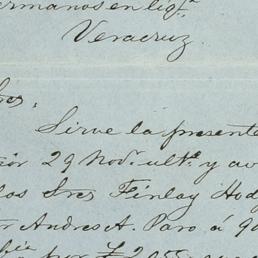 ermanos en liqn.
Veracruz
res,
Sirve la presente
29 Novê. ulto. y av
los Sres Finlay Hod
Andres A. Paro á 90
por £ 2,055